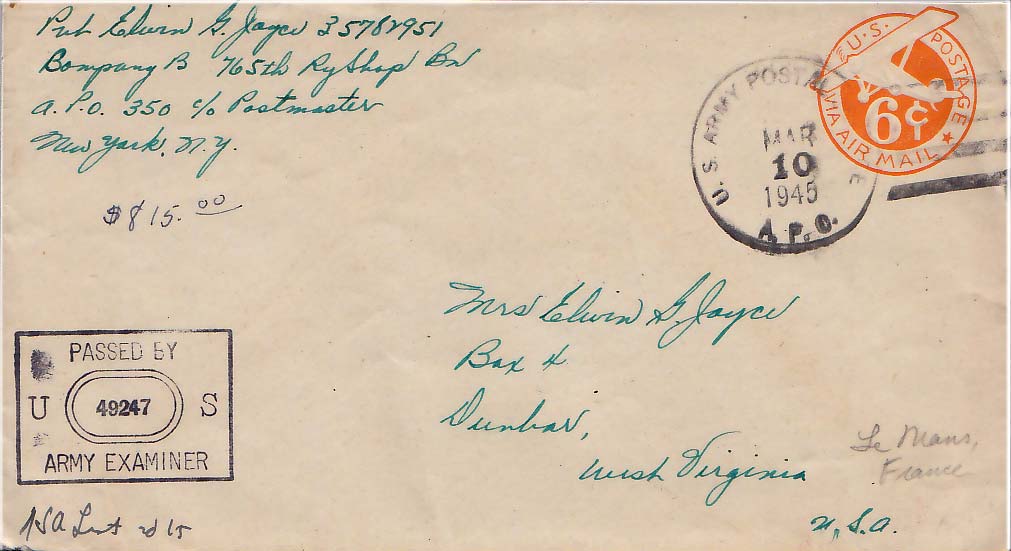 Pvt Elwin G. Jayce 35782951
Company B 765th Ry Shop Bn
A.P.O. 350 c/o Postmaster
New York, N.Y.
$815.00
U.S. POSTAGE
6¢
VIA AIR MAIL
U.S. ARMY POSTAL
MAR
10
1945
A.P.O.
Mrs Elwin G. Jayce
Box 4
Dunbar,
West Virginia
U.S.A.
Le Mans,
France
PASSED BY
U 49247 S
ARMY EXAMINER